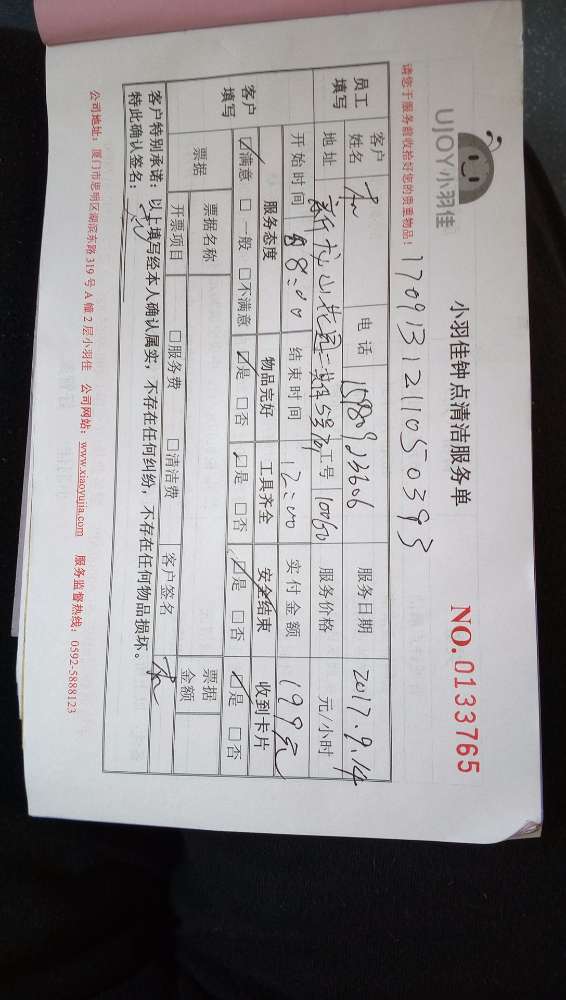 UJOY小羽佳
小羽佳钟点清洁服务单
NO.0133765
请您于服务前收拾好您的贵重物品！
1709131211050393
员工填写
客户姓名 电话 15980923606 服务日期 2017.9.14
地址 新龙山花园一期 工号 10060 服务价格 元/小时
开始时间 8:00 结束时间 12:00 实付金额 199元
客户填写
服务态度 物品完好 工具齐全 安全结束 收到卡片
☑满意 □一般 □不满意 ☑是 □否 ☑是 □否 ☑是 □否 ☑是 □否
票据 票据名称 票据金额
开票项目 □服务费 □清洁费 客户签名
客户特别承诺：以上填写经本人确认属实，不存在任何纠纷，不存在任何物品损坏。
特此确认签名：
公司地址：厦门市思明区湖滨东路319号A幢2层小羽佳 公司网站：www.xiaoyujia.com 服务监督热线：0592-5888123